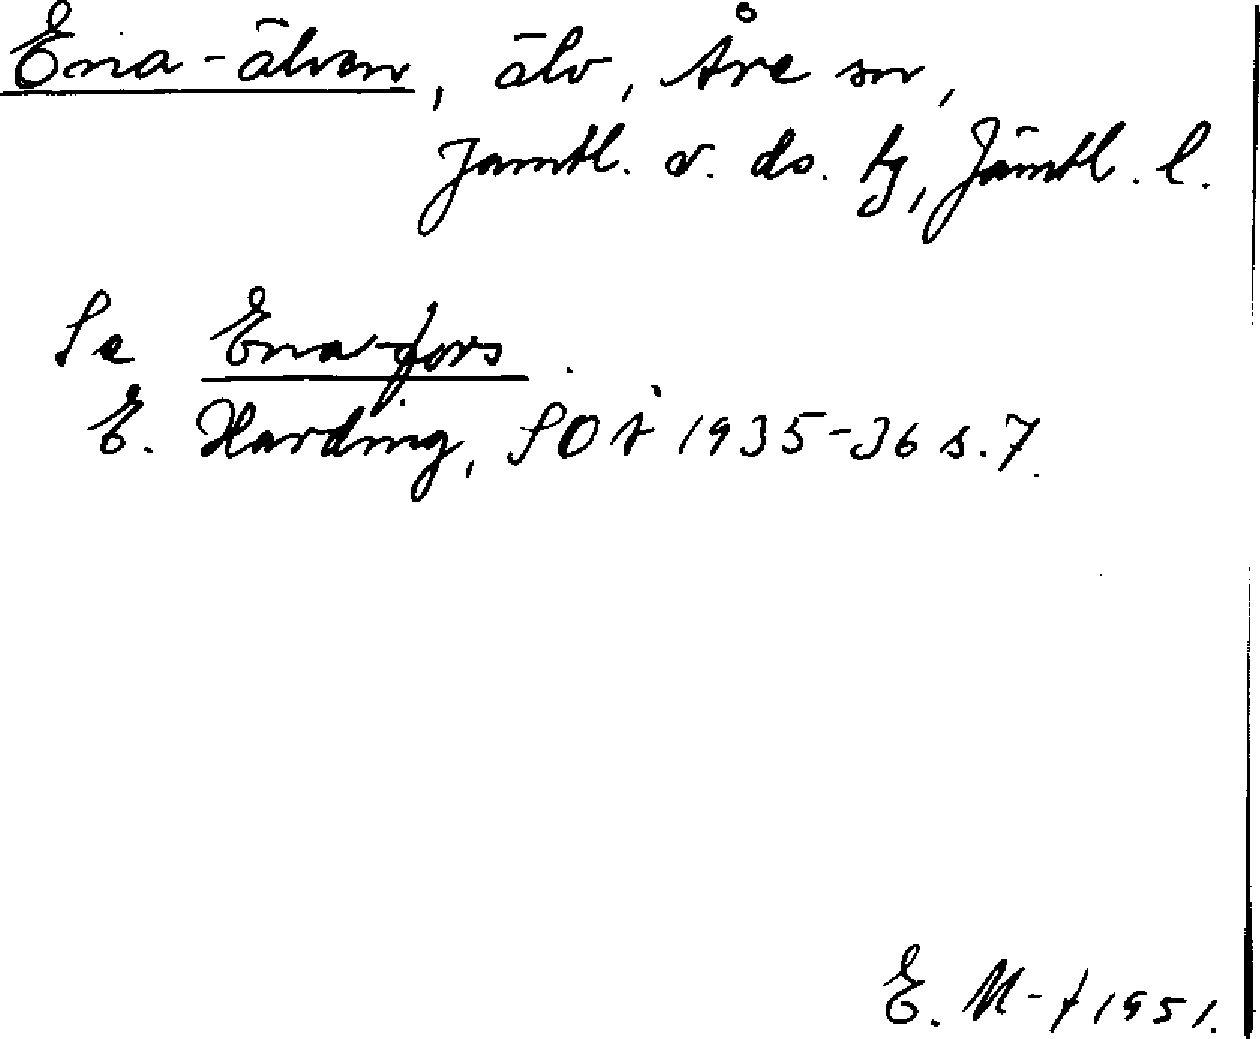 Ena-älven, älv, Åre sn,
Jämtl. v. ds. tg, Jämtl. l.
Se Ena-fors.
E. Harding, SOÅ 1935-36 s. 7.
E. M-f 1951.